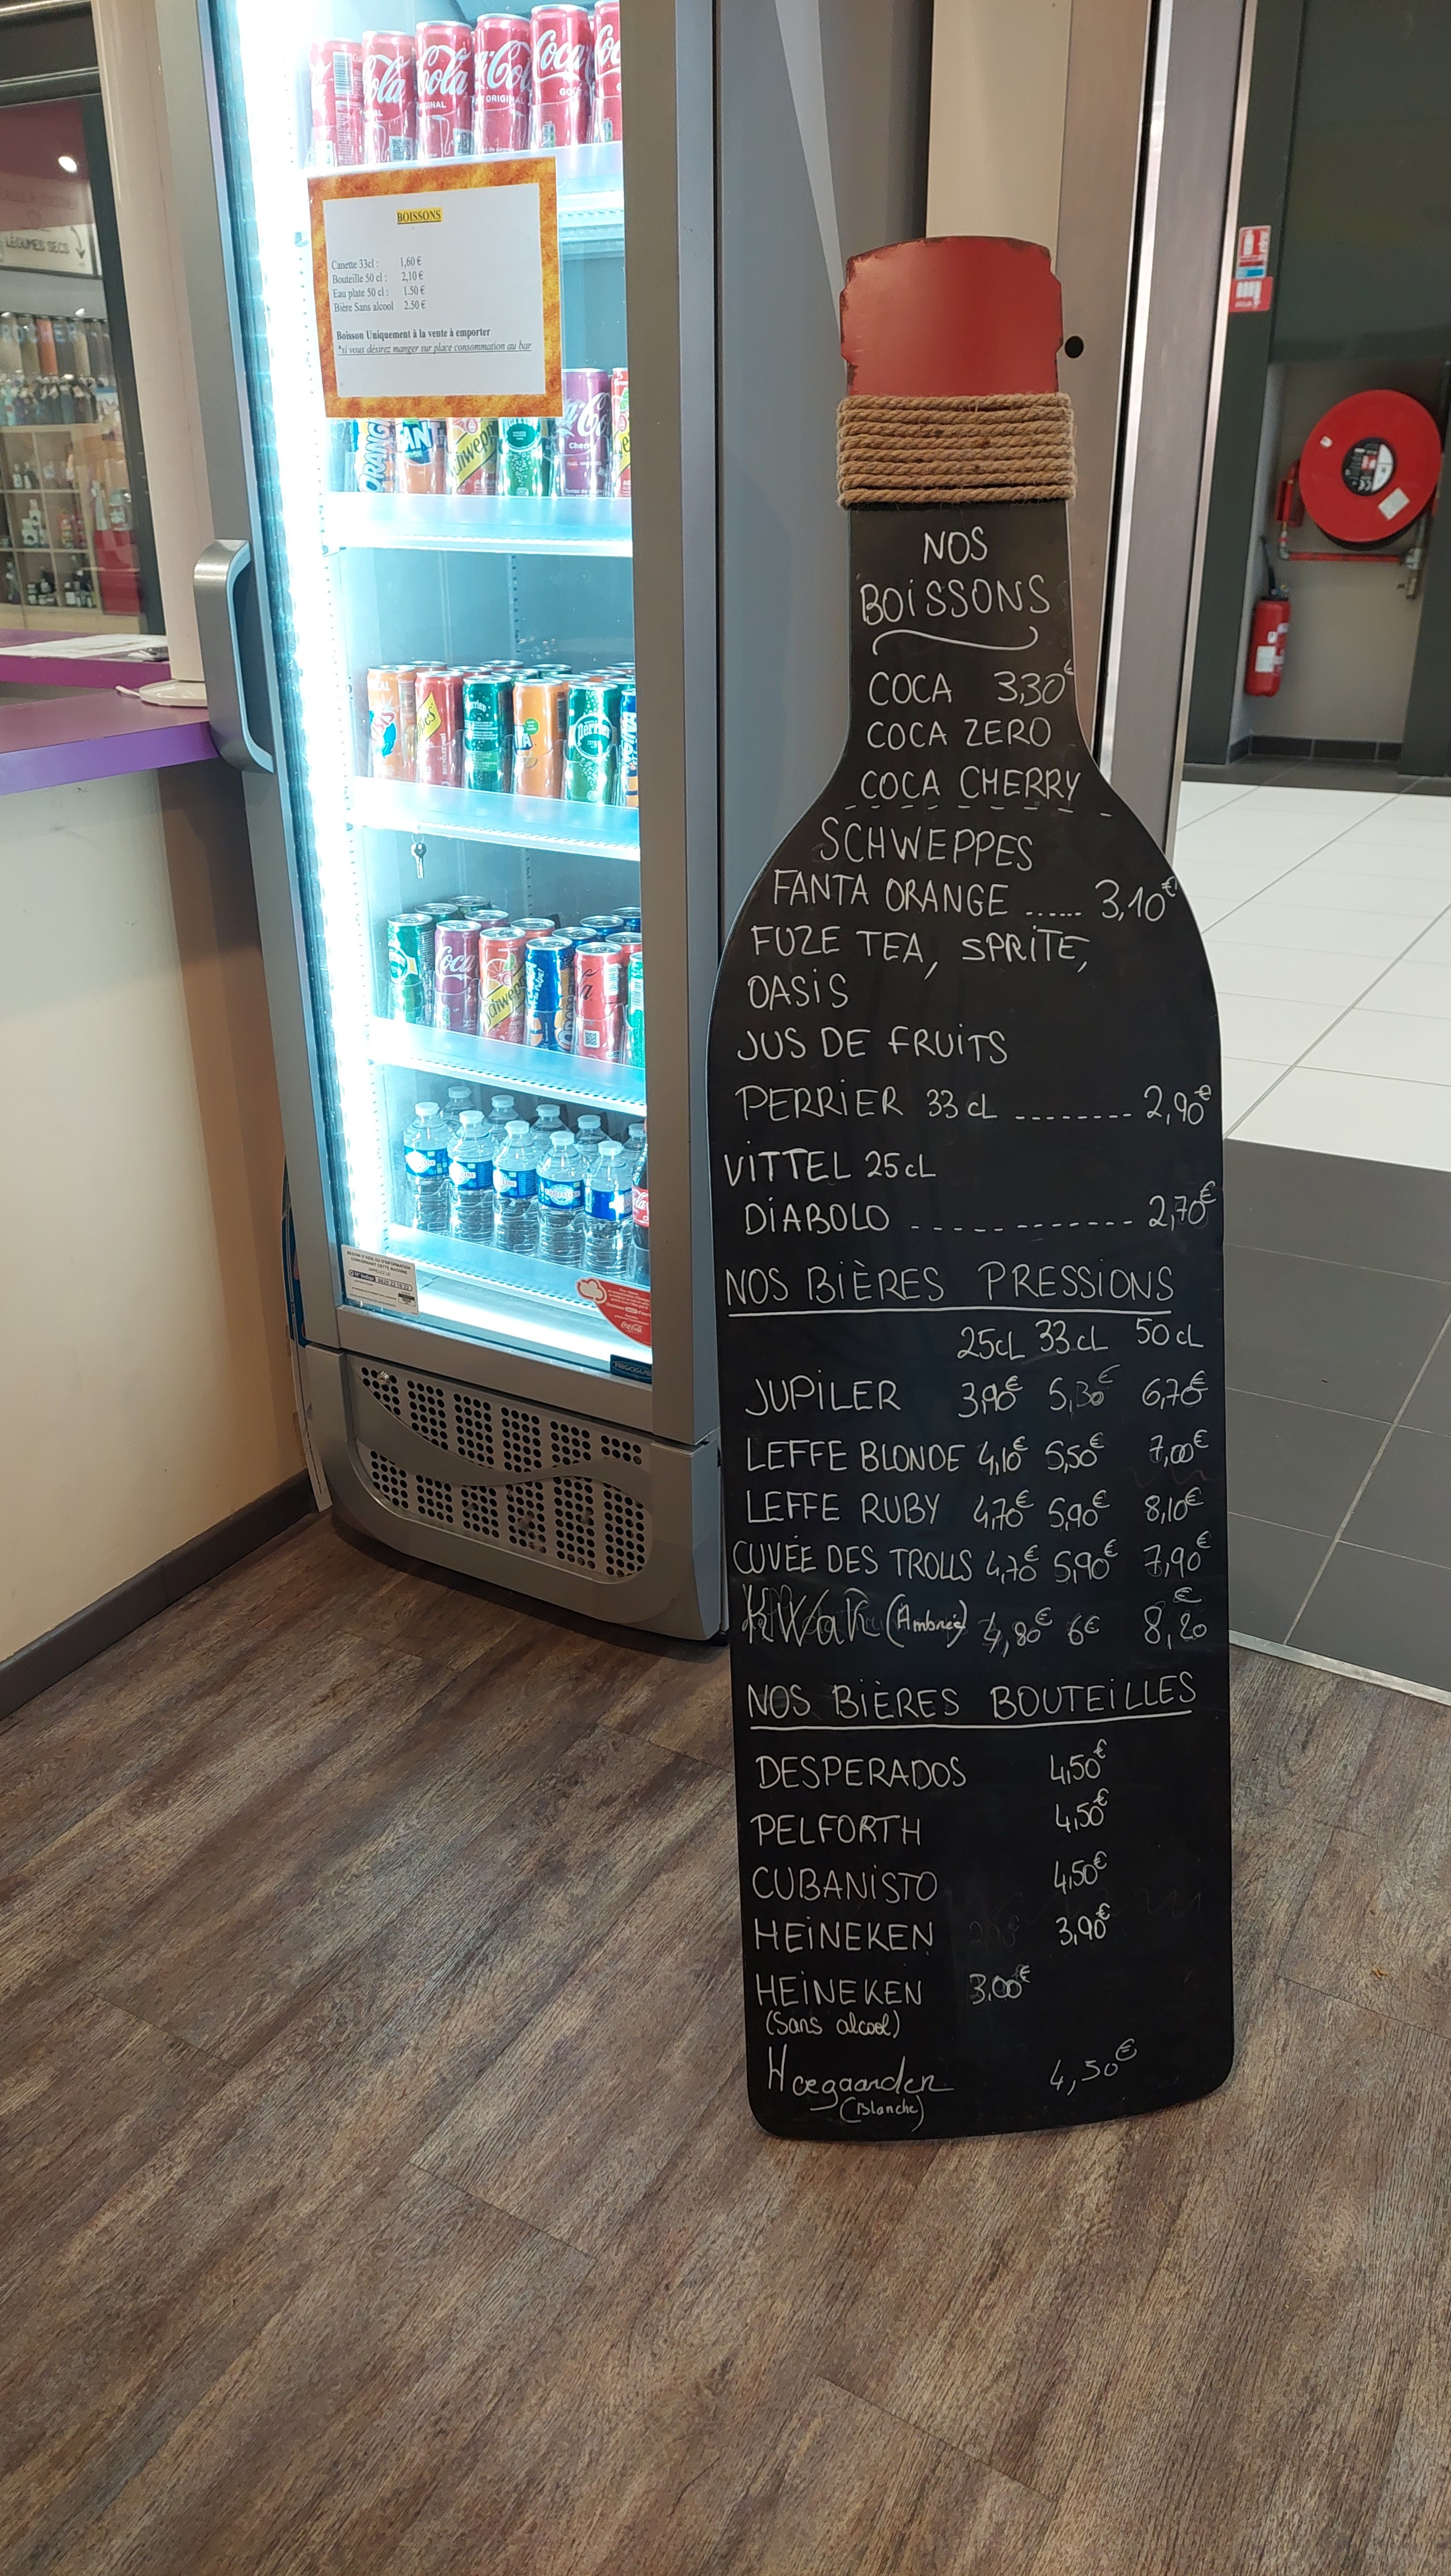 BOISSONS
Canette 33cl : 1,60 €
Bouteille 50 cl : 2,10 €
Eau plate 50 cl : 1.50 €
Bière Sans alcool 2.50 €
Boisson Uniquement à la vente à emporter
*si vous désirez manger sur place consommation au bar
LÉGUMES SECS
NOS
BOISSONS
COCA 3,30€
COCA ZERO
COCA CHERRY
SCHWEPPES
FANTA ORANGE ...... 3,10€
FUZE TEA, SPRITE,
OASIS
JUS DE FRUITS
PERRIER 33 CL -------- 2,90€
VITTEL 25 CL
DIABOLO ------------ 2,70€
NOS BIÈRES PRESSIONS
25CL 33 CL 50 CL
JUPILER 3,90€ 5,30€ 6,70€
LEFFE BLONDE 4,10€ 5,50€ 7,00€
LEFFE RUBY 4,70€ 5,90€ 8,10€
CUVÉE DES TROLLS 4,70€ 5,90€ 7,90€
KWaK (Ambrée) 4,80€ 6€ 8,20€
NOS BIÈRES BOUTEILLES
DESPERADOS 4,50€
PELFORTH 4,50€
CUBANISTO 4,50€
HEINEKEN 3,90€
HEINEKEN 3.00€
(Sans alcool)
Hoegaarden 4,50€
(Blanche)